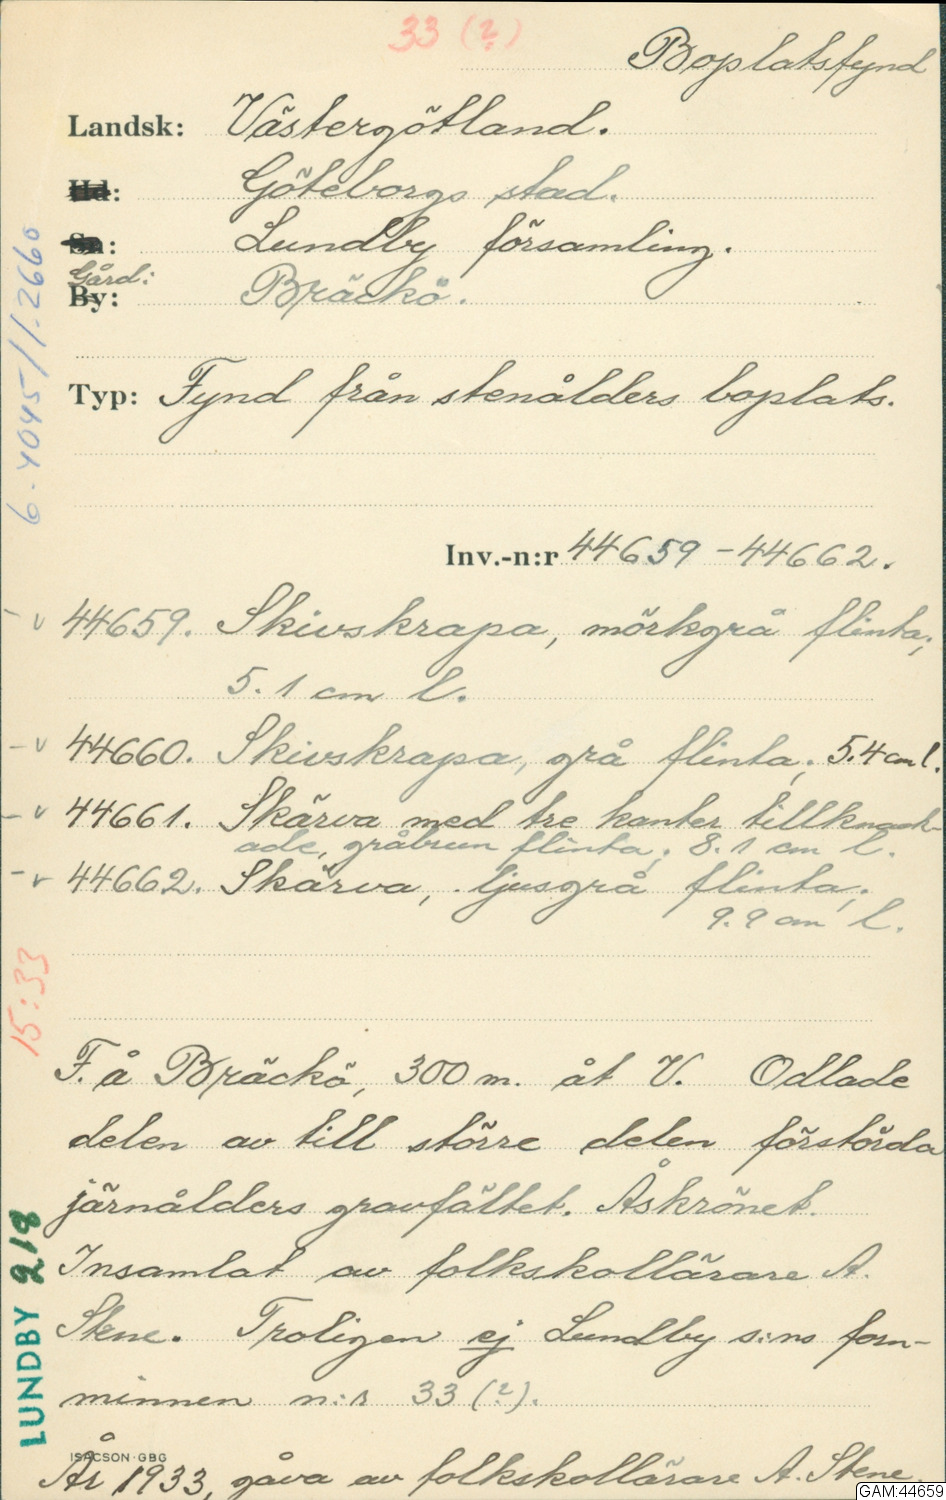 33 (?)
Boplatsfynd
Landsk: Västergötland.
Hd: Göteborgs stad.
Sn: Lundby församling.
Gård:
By: Bräckö.
Typ: Fynd från stenålders boplats.
6-4045/1-2660
Inv.-n:r 44659-44662.
- v 44659. Skivskrapa, mörkgrå flinta;
5.1 cm l.
- v 44660. Skivskrapa, grå flinta; 5.4 cm l.
- v 44661. Skärva med tre kanter tillknack-
ade, gråbrun flinta; 8.1 cm l.
- v 44662. Skärva, ljusgrå flinta;
9.9 cm l.
15:33
F. å Bräckö, 300 m. åt V. Odlade
delen av till större delen förstörda
järnålders gravfältet. Åskrönet.
Insamlat av folkskollärare A.
Stene. Troligen ej Lundby s:ns forn-
minnen n:r 33 (?).
LUNDBY 218
ISACSON·GBG
År 1933, gåva av folkskollärare A. Stene.
GAM:44659